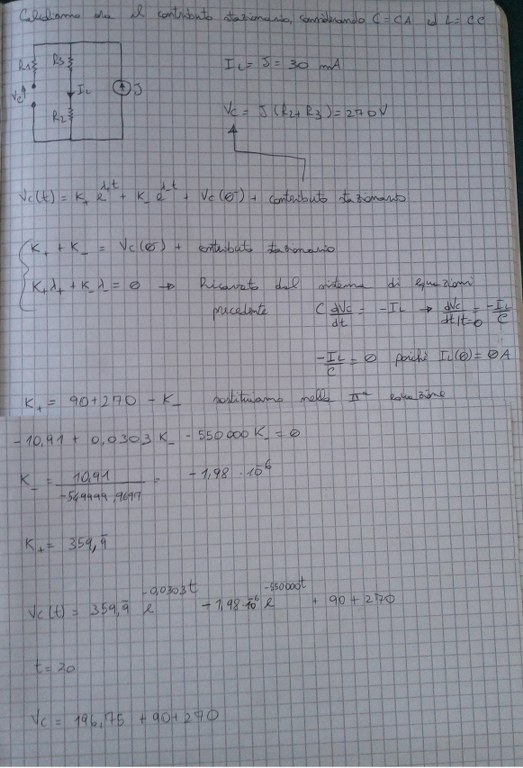 Calcoliamo ora il contributo stazionario, considerando C = CA ed L = CC
R1 R3
IL J
Vc
R2
IL = J = 30 mA
Vc = J (R2 + R3) = 270V
Vc(t) = K+ e^λ+t + K- e^λ-t + Vc(0⁻) + contributo stazionario
K+ + K- = Vc(0⁻) + contributo stazionario
K+λ+ + K-λ- = 0 → Ricavato dal sistema di equazioni
precedente C dVc/dt = -IL → dVc/dt|t=0 = -IL/C
-IL/C = 0 perché IL(0) = 0A
K+ = 90+270 - K- sostituiamo nella IIª equazione
-10,91 + 0,0303 K- - 550000 K- = 0
K- = 10,91/-549999,9697 = -1,98 · 10^-6
K+ = 359,9̄
Vc(t) = 359,9̄ e^-0,0303t - 1,98·10^-6 e^-550000t + 90 + 270
t = 20
Vc = 196,75 + 90 + 270